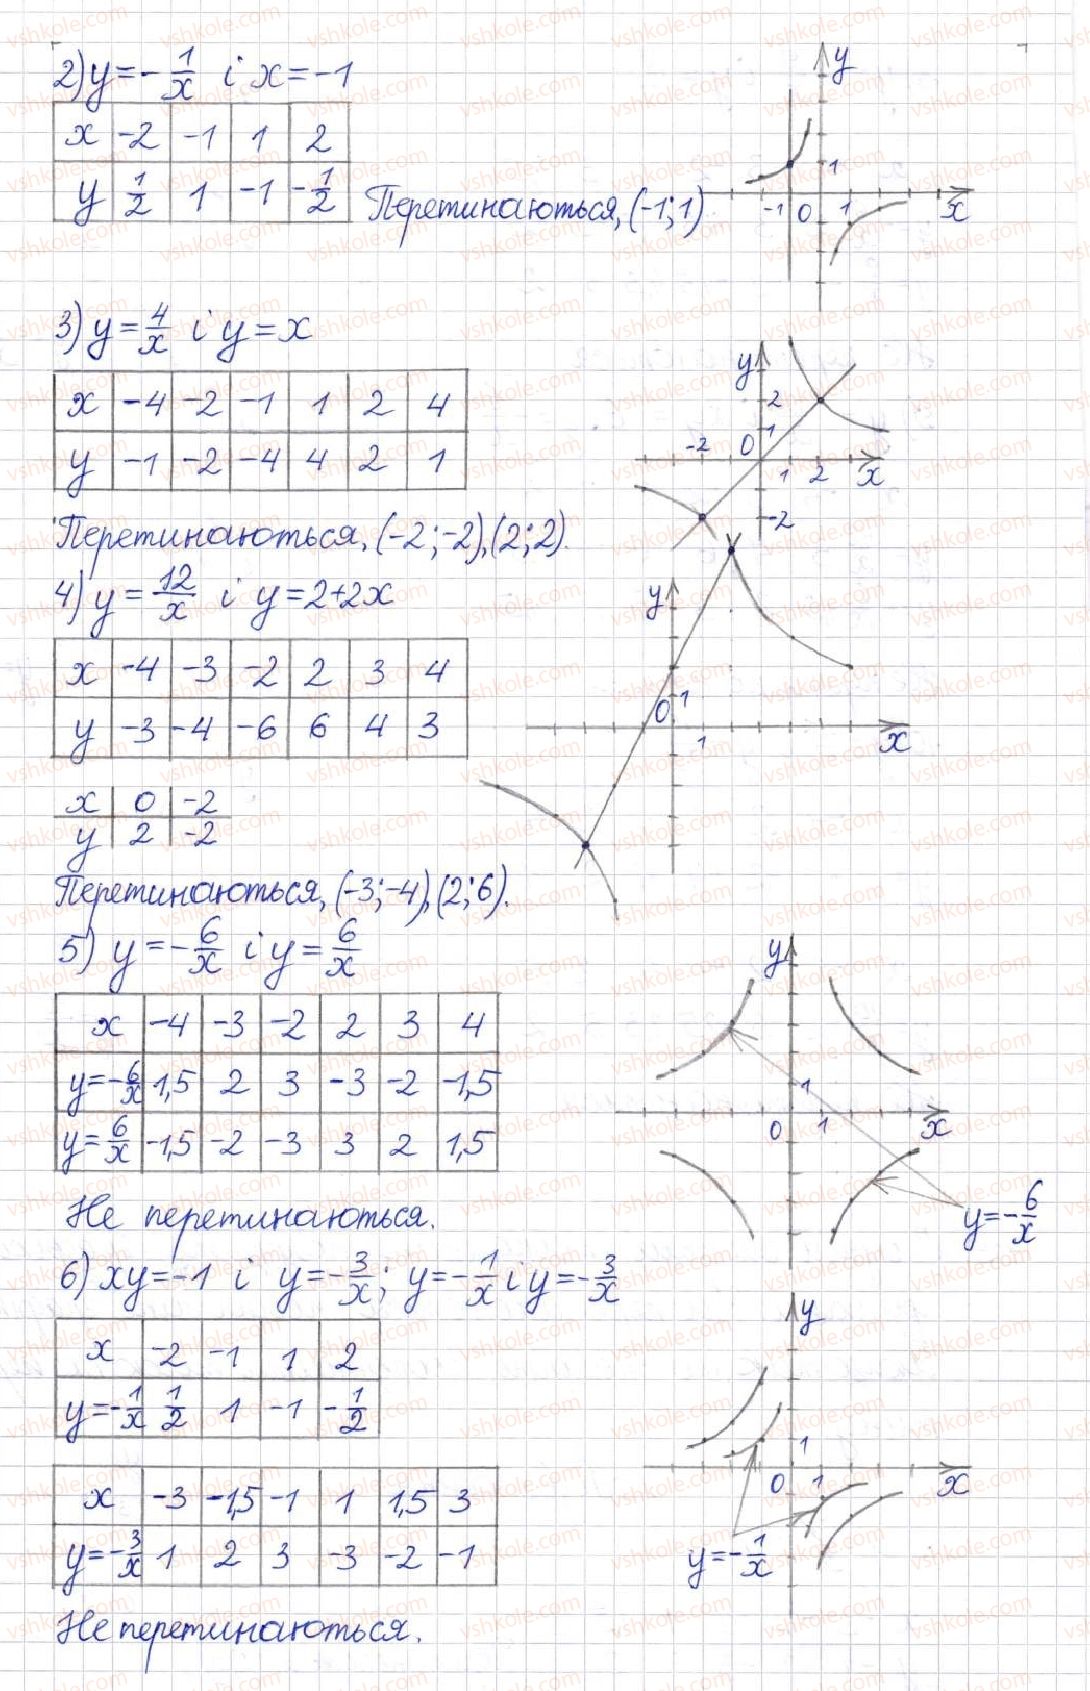 2) y = -1/x і x = -1
x -2 -1 1 2
y 1/2 1 -1 -1/2
Перетинаються, (-1; 1)
y
1
-1 0 1 x
3) y = 4/x і y = x
x -4 -2 -1 1 2 4
y -1 -2 -4 4 2 1
Перетинаються, (-2; -2), (2; 2).
y
2
1
-2 0 1 2 x
-2
4) y = 12/x і y = 2+2x
x -4 -3 -2 2 3 4
y -3 -4 -6 6 4 3
x 0 -2
y 2 -2
Перетинаються, (-3; -4), (2; 6).
y
1
0 1 x
5) y = -6/x і y = 6/x
x -4 -3 -2 2 3 4
y=-6/x 1,5 2 3 -3 -2 -1,5
y=6/x -1,5 -2 -3 3 2 1,5
Не перетинаються.
y
1
0 1 x
y=-6/x
6) xy = -1 і y = -3/x; y = -1/x і y = -3/x
x -2 -1 1 2
y=-1/x 1/2 1 -1 -1/2
x -3 -1,5 -1 1 1,5 3
y=-3/x 1 2 3 -3 -2 -1
Не перетинаються.
y
1
0 1 x
y=-1/x
vshkole.com